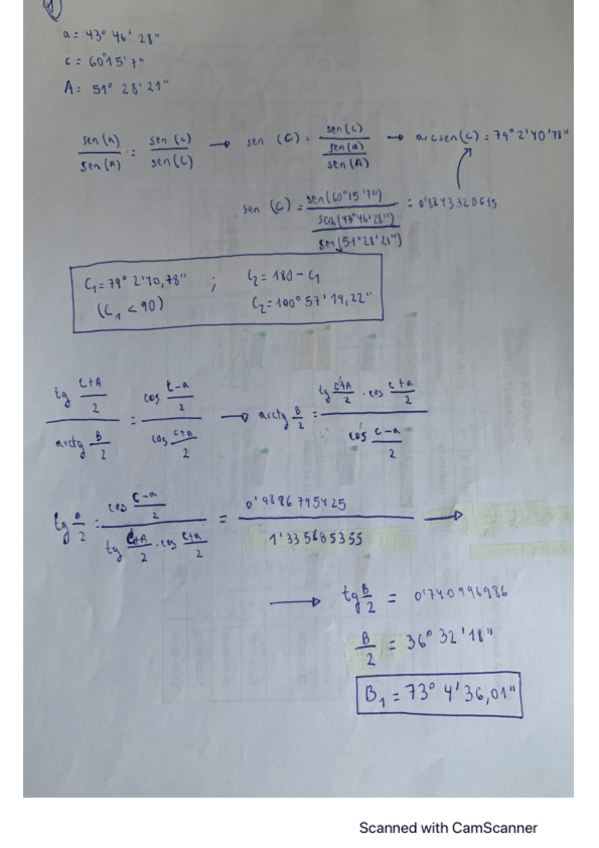 a = 43° 46' 28"
c = 60°15'7"
A = 51° 28' 21"
sen(a)/sen(A) = sen(c)/sen(C) → sen (C) = sen(c)/(sen(a)/sen(A)) → arcsen(C) = 79° 2'40'78"
sen (C) = sen(60°15'7")/(sen(43°46'28")/sen(51°28'21")) =
C₁ = 79° 2'40,78" ; C₂ = 180 - C₁
(C₁ < 90) C₂ = 100° 57' 19,22"
tg (C+A)/2 / arctg B/2 = cos (c-a)/2 / cos (c+a)/2 → arctg B/2 = tg (C+A)/2 · cos (c+a)/2 / cos (c-a)/2
tg B/2 = cos (c-a)/2 / tg (C+A)/2 · cos (c+a)/2 = 0'9896795425 / 1'335685355 →
→ tg B/2 = 0'740996986
B/2 = 36° 32' 18"
B₁ = 73° 4' 36,01"
Scanned with CamScanner